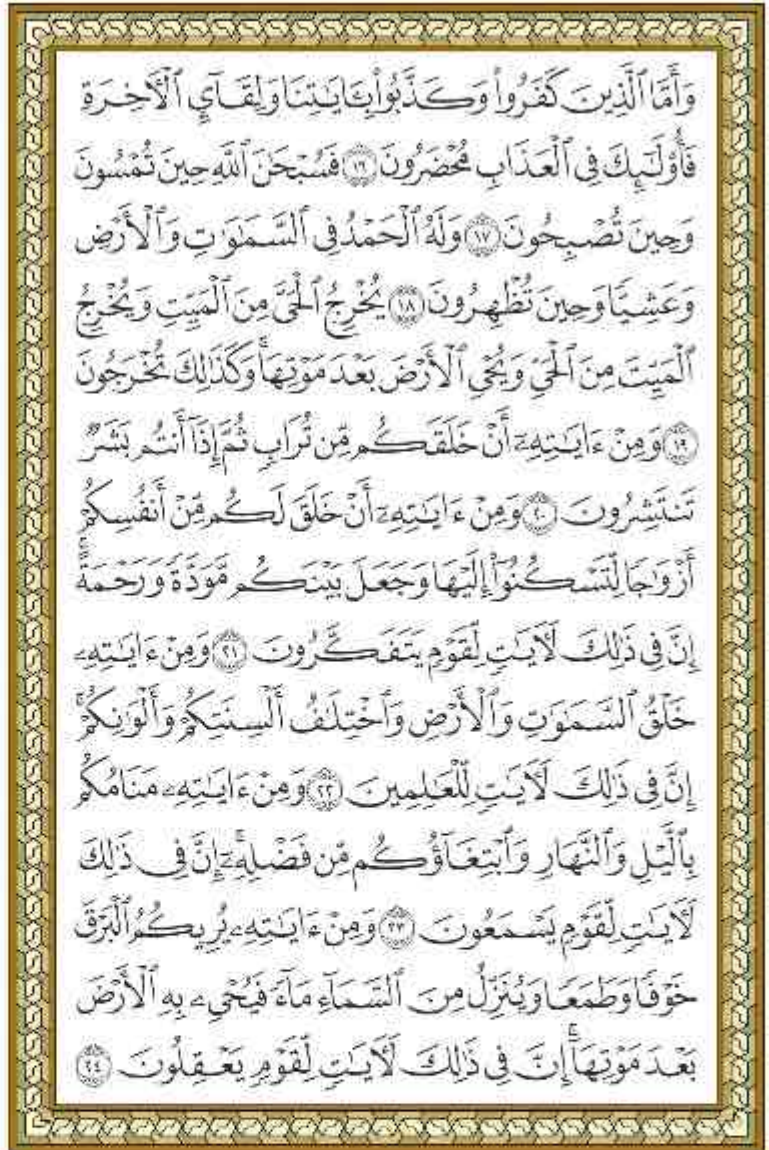 وَأَمَّا ٱلَّذِينَ كَفَرُواْ وَكَذَّبُواْ بِـَٔايَـٰتِنَا وَلِقَآيِٕ ٱلْـَٔاخِرَةِ
فَأُوْلَـٰٓئِكَ فِى ٱلْعَذَابِ مُحْضَرُونَ ١٦ فَسُبْحَـٰنَ ٱللَّهِ حِينَ تُمْسُونَ
وَحِينَ تُصْبِحُونَ ١٧ وَلَهُ ٱلْحَمْدُ فِى ٱلسَّمَـٰوَٰتِ وَٱلْأَرْضِ
وَعَشِيًّا وَحِينَ تُظْهِرُونَ ١٨ يُخْرِجُ ٱلْحَىَّ مِنَ ٱلْمَيِّتِ وَيُخْرِجُ
ٱلْمَيِّتَ مِنَ ٱلْحَىِّ وَيُحْىِ ٱلْأَرْضَ بَعْدَ مَوْتِهَا ۚ وَكَذَٰلِكَ تُخْرَجُونَ
١٩ وَمِنْ ءَايَـٰتِهِۦٓ أَنْ خَلَقَكُم مِّن تُرَابٍ ثُمَّ إِذَآ أَنتُم بَشَرٌ
تَنتَشِرُونَ ٢٠ وَمِنْ ءَايَـٰتِهِۦٓ أَنْ خَلَقَ لَكُم مِّنْ أَنفُسِكُمْ
أَزْوَٰجًا لِّتَسْكُنُوٓاْ إِلَيْهَا وَجَعَلَ بَيْنَكُم مَّوَدَّةً وَرَحْمَةً ۚ
إِنَّ فِى ذَٰلِكَ لَـَٔايَـٰتٍ لِّقَوْمٍ يَتَفَكَّرُونَ ٢١ وَمِنْ ءَايَـٰتِهِۦ
خَلْقُ ٱلسَّمَـٰوَٰتِ وَٱلْأَرْضِ وَٱخْتِلَـٰفُ أَلْسِنَتِكُمْ وَأَلْوَٰنِكُمْ ۚ
إِنَّ فِى ذَٰلِكَ لَـَٔايَـٰتٍ لِّلْعَـٰلِمِينَ ٢٢ وَمِنْ ءَايَـٰتِهِۦ مَنَامُكُم
بِٱلَّيْلِ وَٱلنَّهَارِ وَٱبْتِغَآؤُكُم مِّن فَضْلِهِۦٓ ۚ إِنَّ فِى ذَٰلِكَ
لَـَٔايَـٰتٍ لِّقَوْمٍ يَسْمَعُونَ ٢٣ وَمِنْ ءَايَـٰتِهِۦ يُرِيكُمُ ٱلْبَرْقَ
خَوْفًا وَطَمَعًا وَيُنَزِّلُ مِنَ ٱلسَّمَآءِ مَآءً فَيُحْىِۦ بِهِ ٱلْأَرْضَ
بَعْدَ مَوْتِهَآ ۚ إِنَّ فِى ذَٰلِكَ لَـَٔايَـٰتٍ لِّقَوْمٍ يَعْقِلُونَ ٢٤